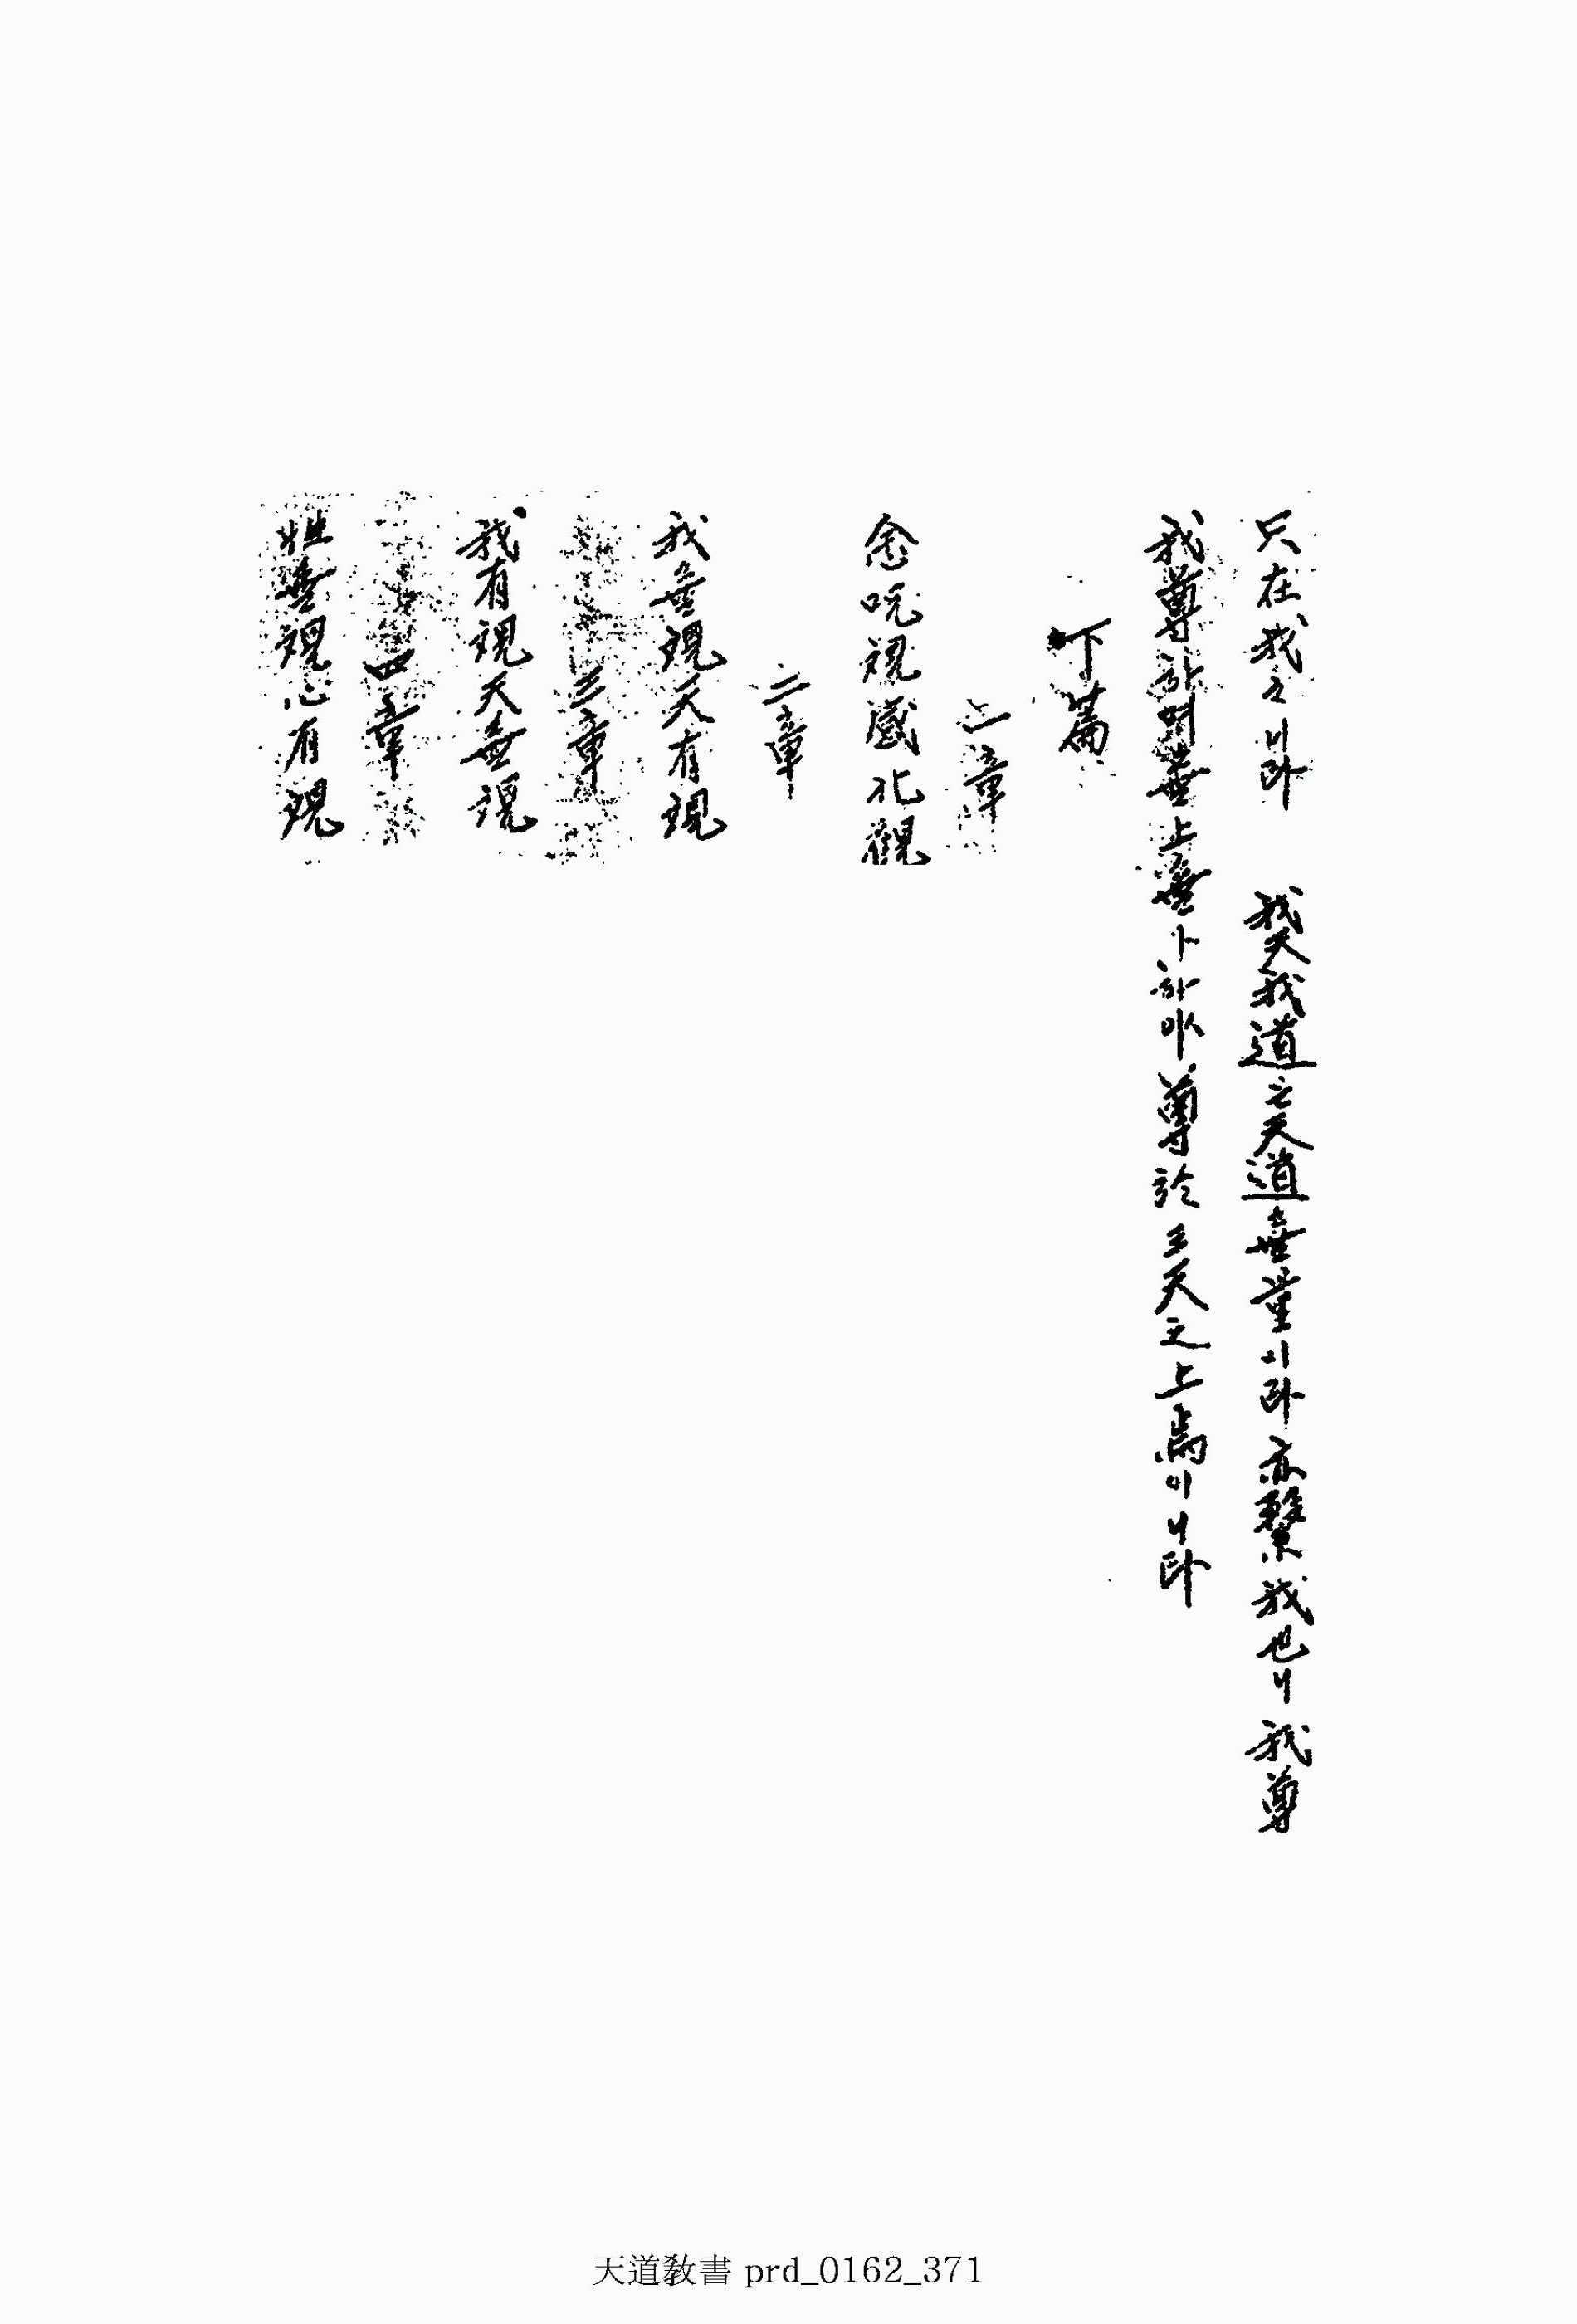 只在我之니라 我天我道之天道無量이라亦繫我也니我尊
我尊하면無上無下하야尊於三天之上焉이니라
下篇
一章
念呪視感化觀
二章
我無現天有現
三章
我有現天無現
四章
性無現心有現
天道敎書 prd_0162_371